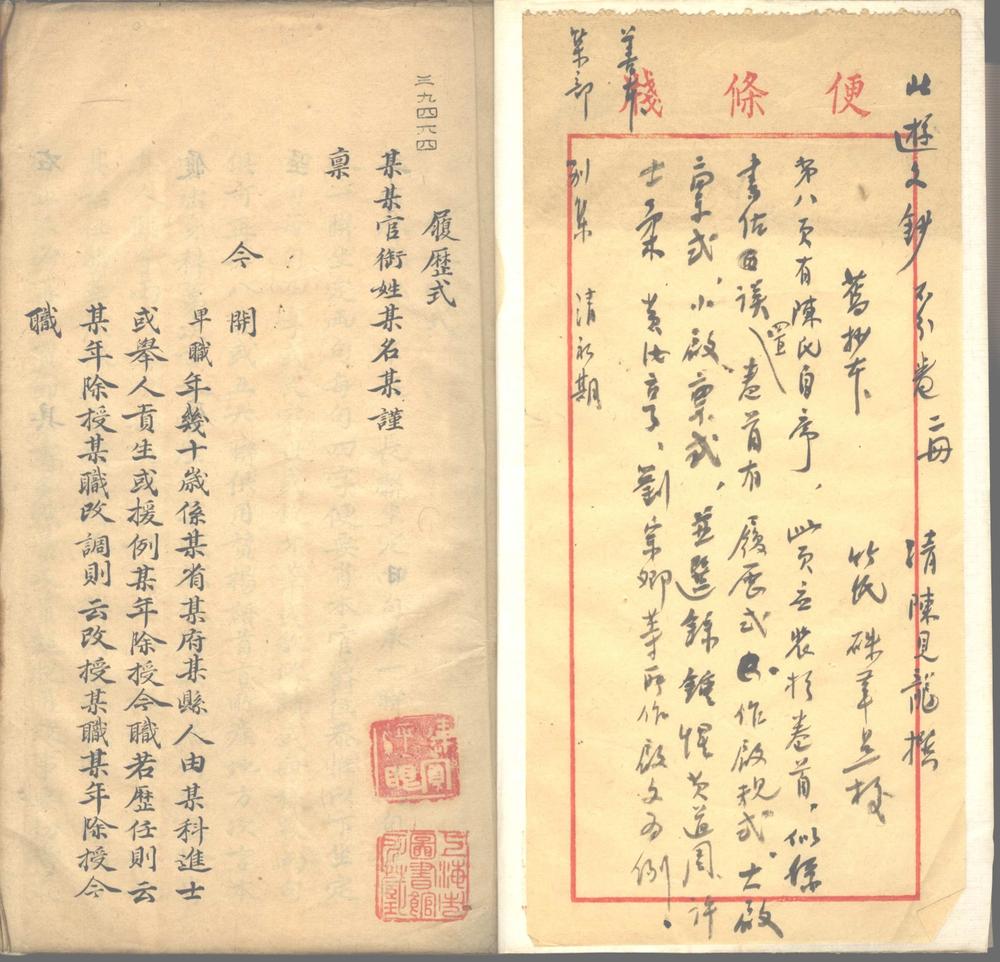 便條牋
此遊文鈔 不分卷 二冊 清陳見龍撰
舊抄本 竹氏硃筆点校
第八頁有陳氏自序，此頁應裝於卷首，似係
書估誤置，卷首有履历式、作啟規式、大啟
稟式、小啟稟式，並選錄鍾惺、黄道周、許
士柔、黄汝亨、劉宗卿等所作啟文为例。
善本
集部
別集 清初期
三九四六四
履歷式
某某官銜姓某名某謹
稟
今開
卑職年幾十歲係某省某府某縣人由某科進士
或舉人貢生或援例某年除授今職若歷任則云
某年除授某職改調則云改授某職某年除授今
職
上海市
圖書館
所藏